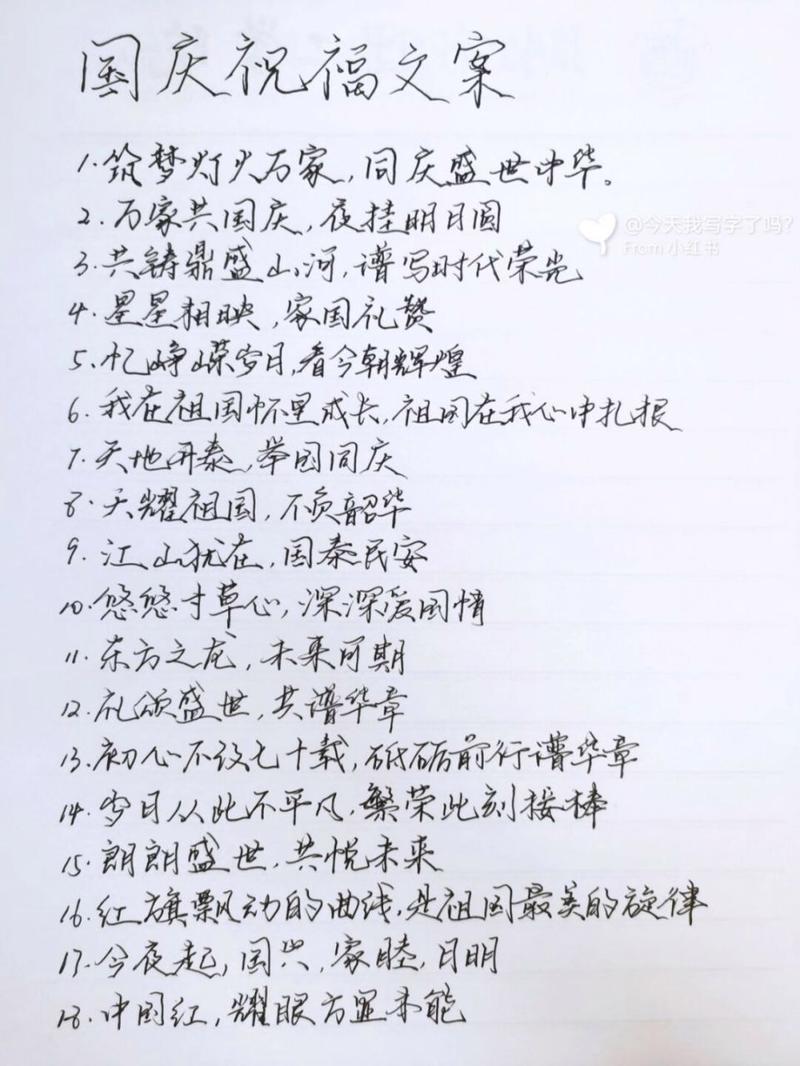 国庆祝福文案
1.筑梦灯火万家,同庆盛世中华。
2.万家共国庆,夜挂明月圆
3.共铸鼎盛山河,谱写时代荣光
4.星星相映,家国礼赞
5.忆峥嵘岁月,看今朝辉煌
6.我在祖国怀里成长,祖国在我心中扎根
7.天地开泰,举国同庆
8.天耀祖国,不负韶华
9.江山犹在,国泰民安
10.悠悠寸草心,深深爱国情
11.东方之龙,未来可期
12.礼颂盛世,共谱华章
13.初心不改七十载,砥砺前行谱华章
14.岁月从此不平凡,繁荣此刻接棒
15.朗朗盛世,共悦未来
16.红旗飘动的曲线,是祖国最美的旋律
17.今夜起,国兴,家睦,月明
18.中国红,耀眼方显本能
@今天我写字了吗?
From 小红书